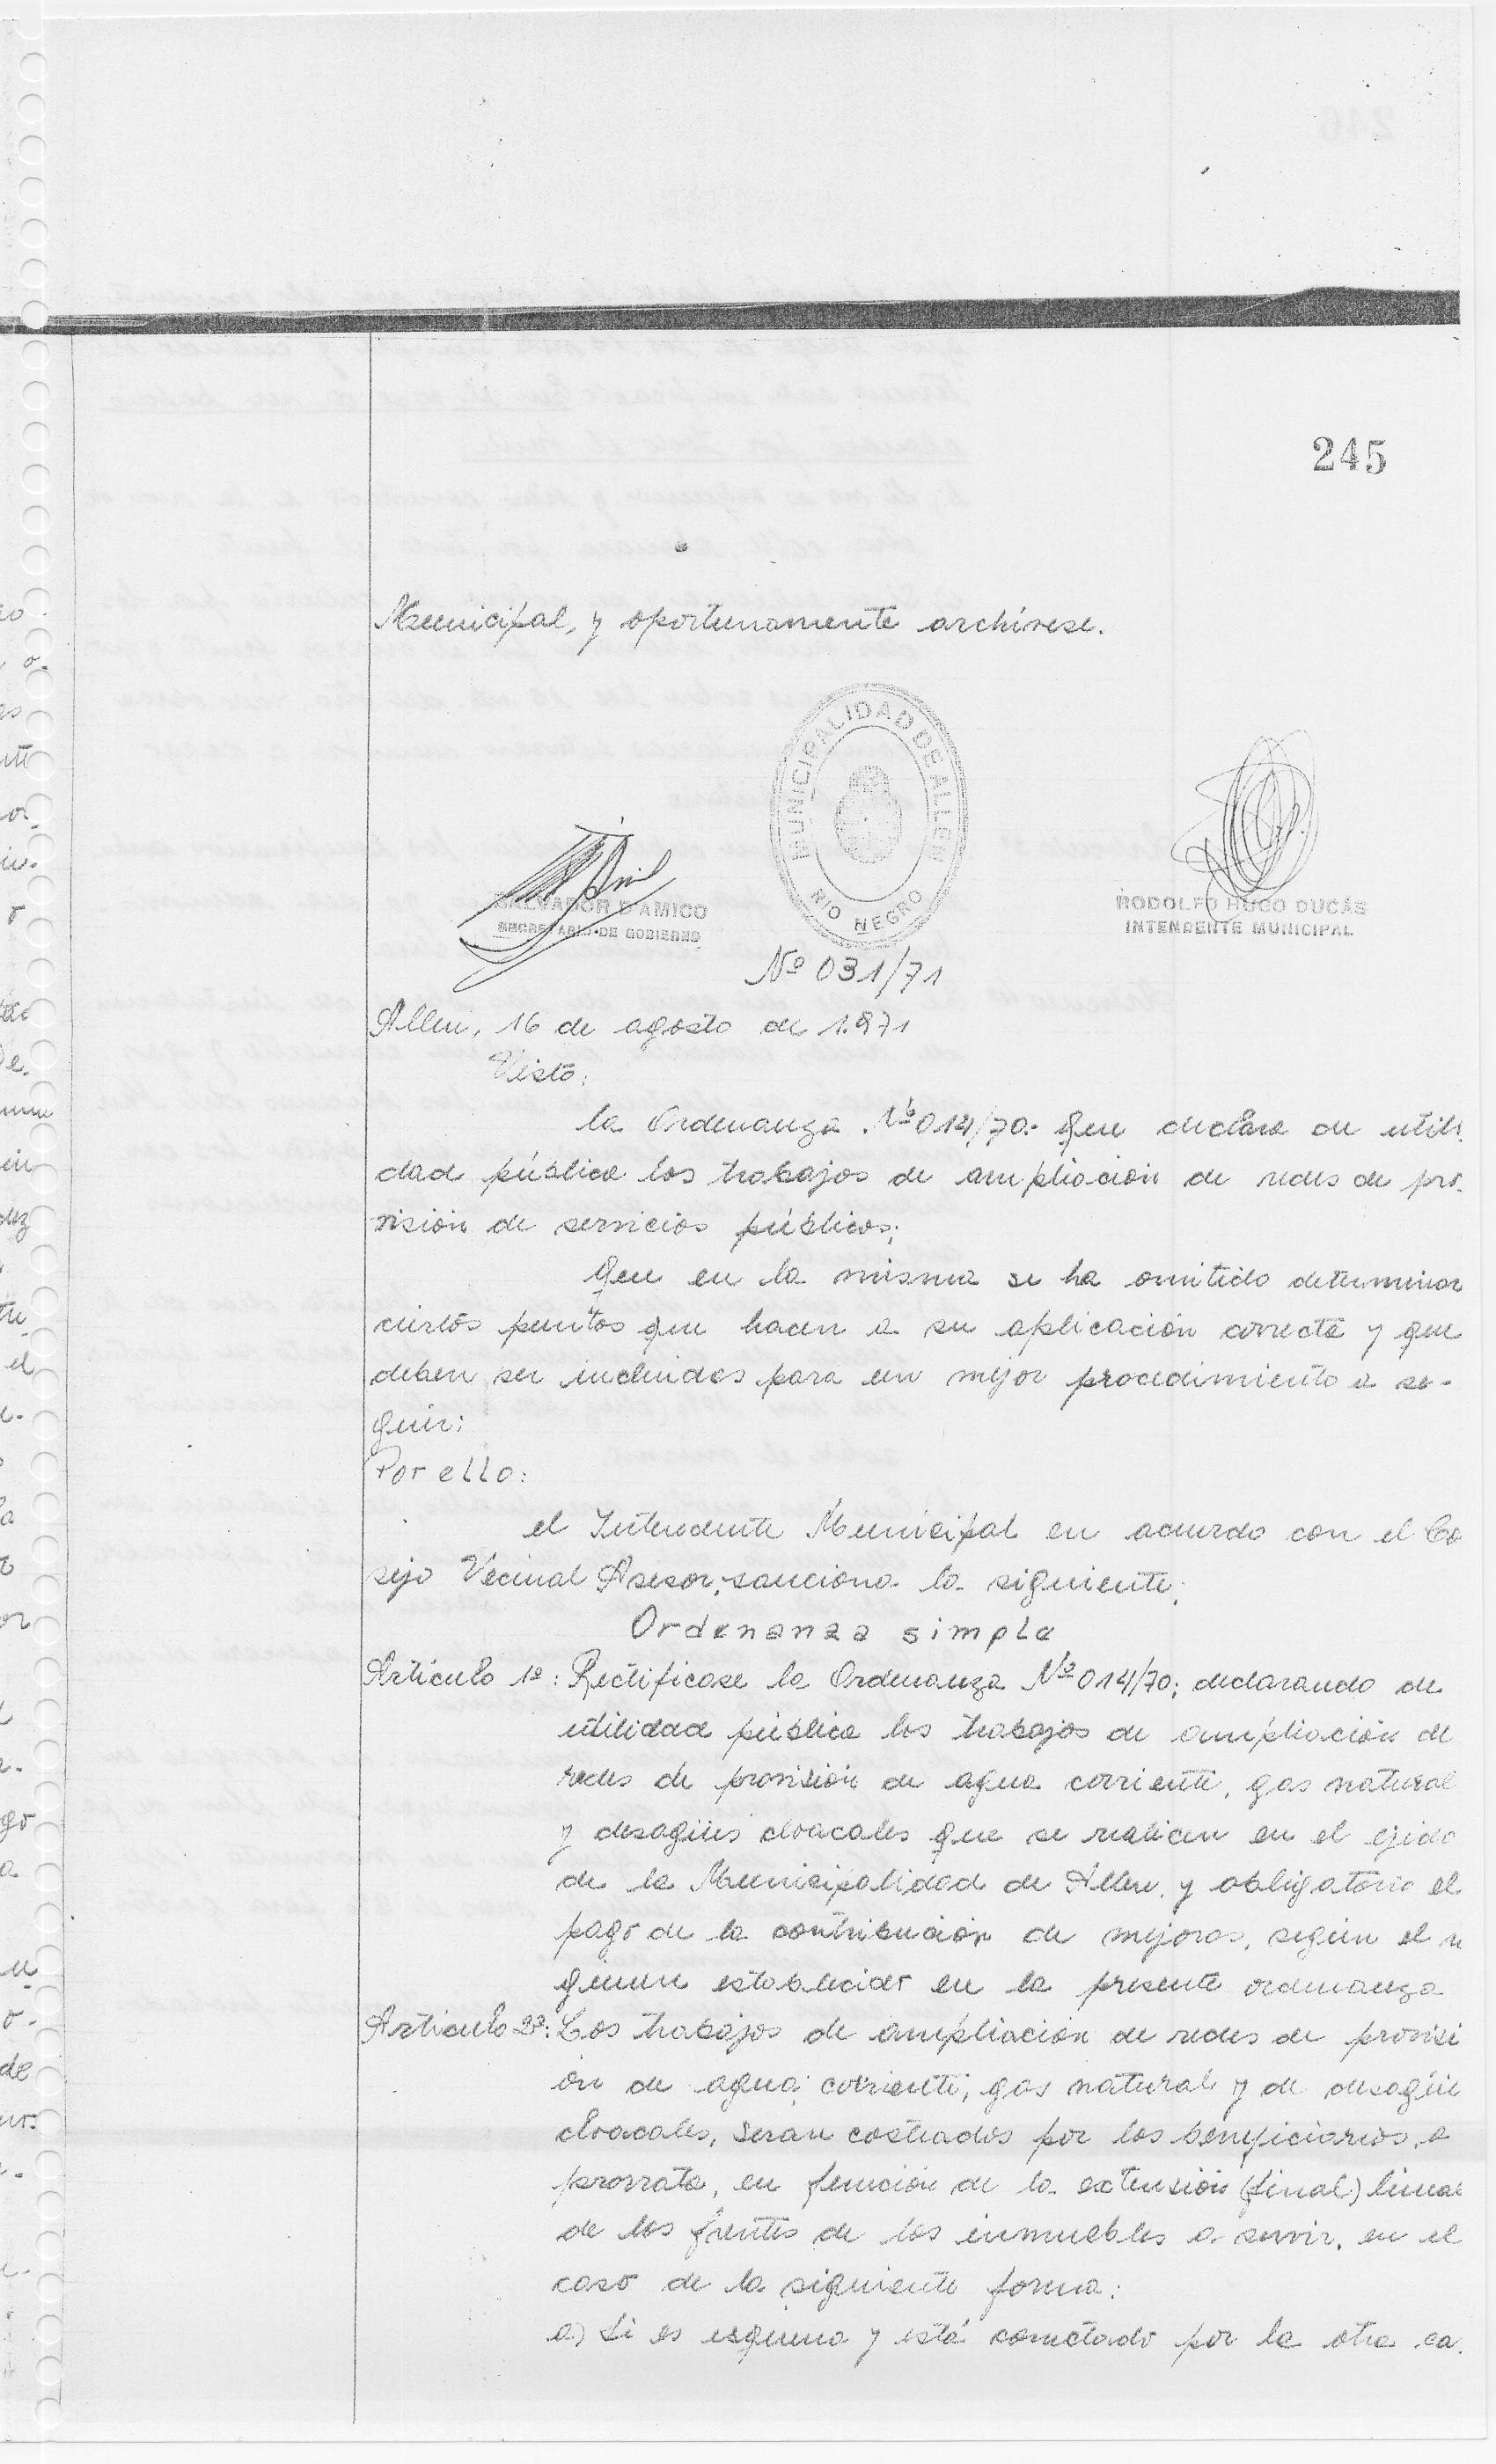 245
Municipal, y oportunamente archívese.
MUNICIPALIDAD DE ALLEN
RIO NEGRO
SALVADOR D'AMICO
SECRETARIO DE GOBIERNO
RODOLFO HUGO DUCÁS
INTENDENTE MUNICIPAL
Nº 031/71
Allen, 16 de agosto de 1.971
Visto:
la Ordenanza Nº 014/70.- Que declara de utili
dad pública los trabajos de ampliación de redes de pro-
visión de servicios públicos;
Que en la misma se ha omitido determinar
ciertos puntos que hacen a su aplicación correcta y que
deben ser incluidos para un mejor procedimiento a se-
guir;
Por ello:
el Intendente Municipal en acuerdo con el Co
sejo Vecinal Asesor, sanciona la siguiente;
Ordenanza simple
Artículo 1º: Rectifícase la Ordenanza Nº 014/70; declarando de
utilidad pública los trabajos de ampliación de
redes de provisión de agua corriente, gas natural
y desagües cloacales que se realicen en el ejido
de la Municipalidad de Allen, y obligatorio el
pago de la contribución de mejoras, según el r
gimen establecido en la presente ordenanza
Artículo 2º: Los trabajos de ampliación de redes de provisi
ón de agua corriente, gas natural y de desagüe
cloacales, serán costeados por los beneficiarios, a
prorrata, en función de la extensión (final) lineal
de los frentes de los inmuebles a servir, en el
caso de la siguiente forma:
a) Si es esquina y está conectado por la otra ca.